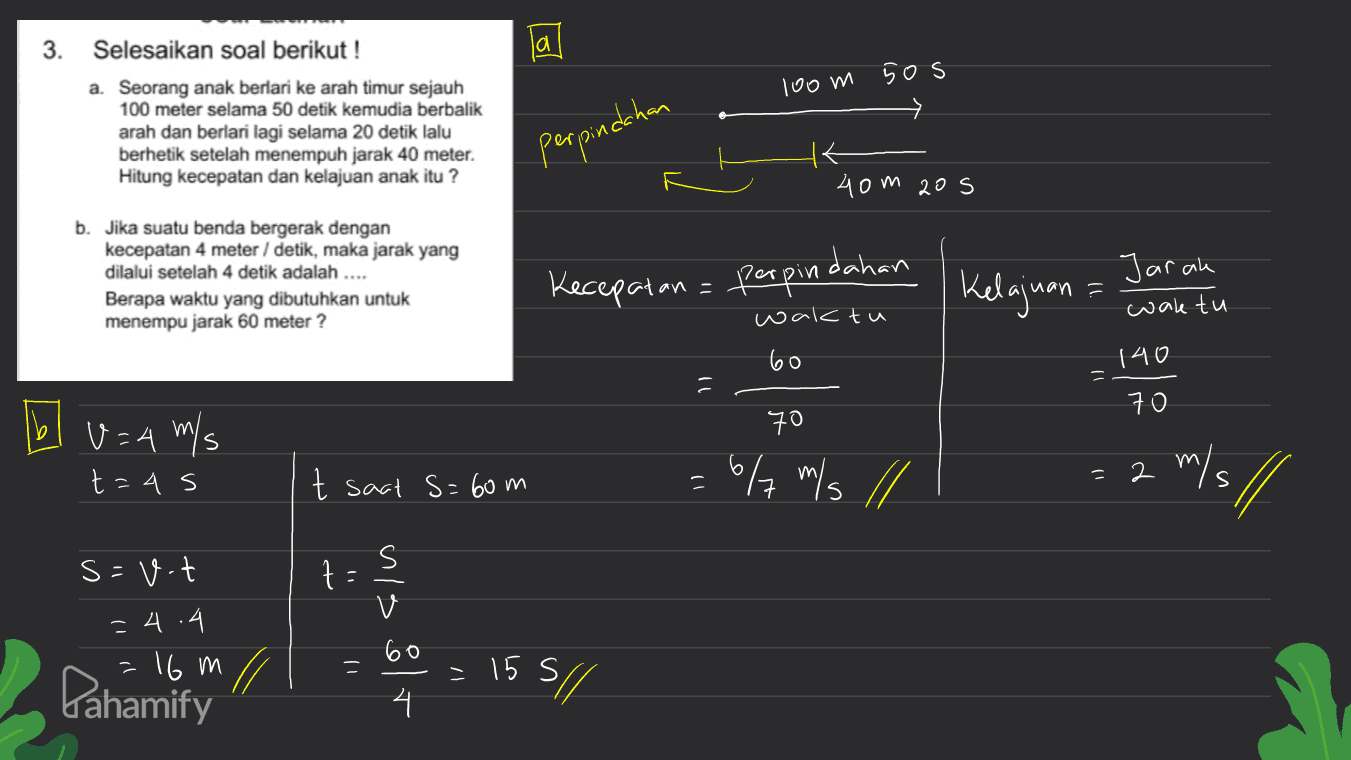 3. Selesaikan soal berikut !
a. Seorang anak berlari ke arah timur sejauh
100 meter selama 50 detik kemudia berbalik
arah dan berlari lagi selama 20 detik lalu
berhetik setelah menempuh jarak 40 meter.
Hitung kecepatan dan kelajuan anak itu ?
b. Jika suatu benda bergerak dengan
kecepatan 4 meter / detik, maka jarak yang
dilalui setelah 4 detik adalah ....
Berapa waktu yang dibutuhkan untuk
menempu jarak 60 meter ?
a
100 m 50 s
perpindahan
40 m 20 s
Kecepatan = perpindahan / waktu
= 60 / 70
= 6/7 m/s
Kelajuan = Jarak / waktu
= 140 / 70
= 2 m/s
b
v = 4 m/s
t = 4 s
s = v.t
= 4.4
= 16 m
t saat s = 60 m
t = s / v
= 60 / 4 = 15 s
Pahamify